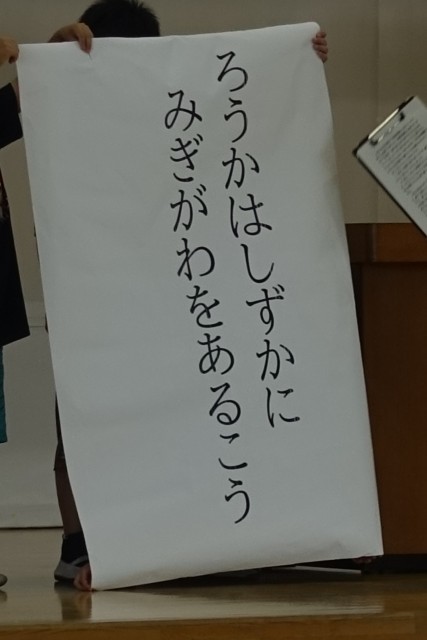 ろうかはしずかに
みぎがわをあるこう